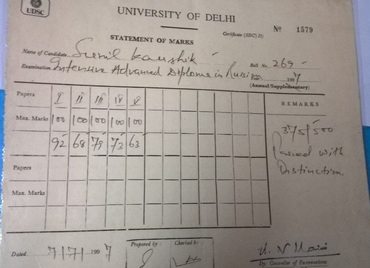 UDSC
UNIVERSITY OF DELHI
Certificate (SDC) S
No 1579
STATEMENT OF MARKS
Name of Candidate Sunil Kaushik
Roll No. 269
Examination Intensive Advanced Diploma in Russian 1997
(Annual/Supplementary)
Papers I II III IV V
REMARKS
Max. Marks 100 100 100 100 100
375/500
92 68 79 73 63
Passed with
Distinction
Papers
Max. Marks
Dated 7/7/1997
Prepared by
Checked by
Dy. Controller of Examinations